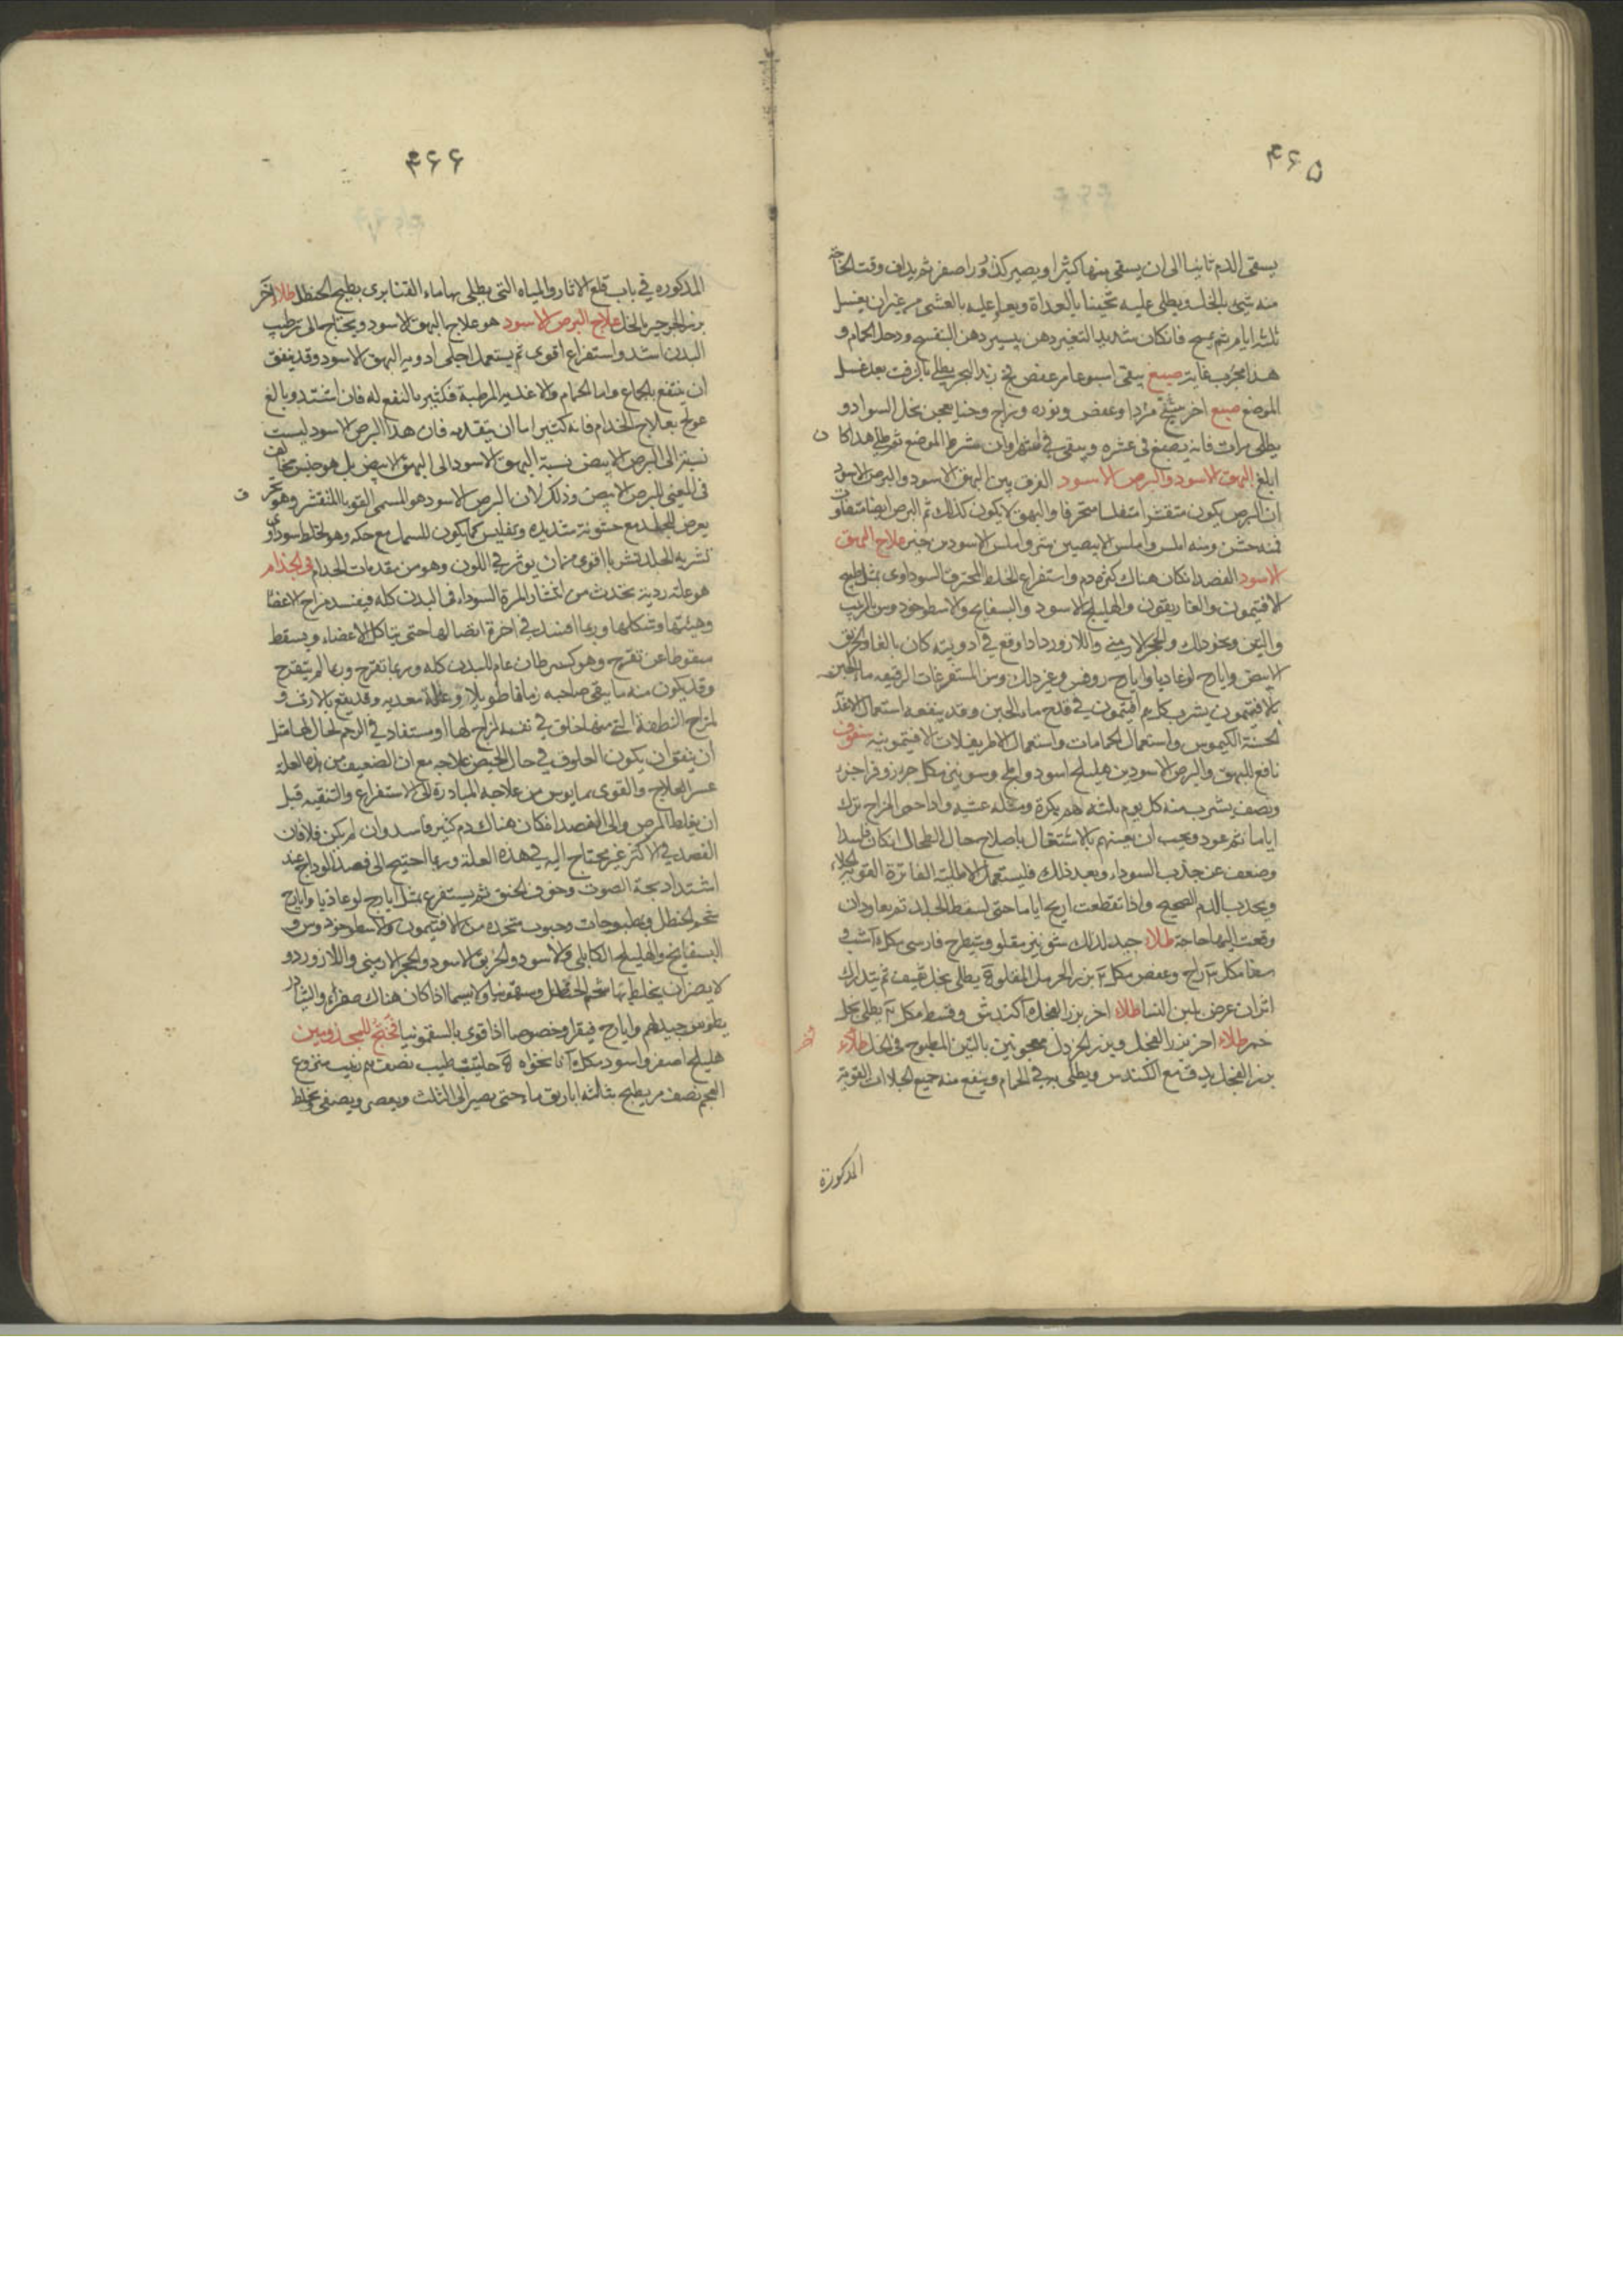 ۴۶۵
يسقى الدم ثانيا الى ان يسقى منها كثيرا ويصير كذرورا صفر ثم يداف وقت الحاجة
منه شئ بالخل ويطلى عليه تخينا بالغداة ويعاد عليه بالعشى من غير ان يغسل
ثلثة ايام ثم يمسح فان كان شديد التغير دهن بيسير دهن البنفسج ودخل الحمام و
هذا مجرب غاية صبغ يبقى اسبوعا مر عفص زبد البحر يطلى بالزفت بعد غسل
الموضع صبغ اخر وعفص ونوره وزاج وحنا يعجن بخل السواد و
يطلى مرات فانه يصبغ فى عشره ويبقى وان شرط الموضع ثم طلى هذا كان
ابلغ البهق الاسود والبرص الاسود الفرق بين البهق الاسود والبرص الاسود
ان البرص يكون متقشرا متفلسا متخرقا والبهق لا يكون كذلك ثم البرص ايضا متفاوت
فمنه خشن ومنه املس واملس الابيضين شر واملس الاسودين خير علاج البهق
الاسود الفصد ان كان هناك كثرة دم واستفراغ الخلط المحترق السوداوى بمثل طبيخ
الافتيمون والغاريقون والهليلج الاسود والبسفايج والاسطوخودوس والزبيب
والتين ونحو ذلك والحجر الارمنى واللازورد اذا وقع فى ادويته كان بالغا والخربق
الابيض وايارج لوغاديا وايارج روفس وغير ذلك ومن المستفرغات الرقيقه ماء الجبن
بالافتيمون يشرب كل يوم افتيمون فى قدح ماء الجبن وقد ينفعه استعمال الاغذية
الحسنة الكيموس واستعمال الحمامات واستعمال الاطريفلات الافتيمونيه سفوف
نافع للبهق والبرص الاسودين هليلج اسود واملج وشونيز مكل جزء
ونصف يشرب منه كل يوم ثلثة دراهم بكرة ومثله عشية واذا حمى المزاج ترك
اياما ثم عود ويجب ان يهتم بالاشتغال باصلاح حال الطحال ان كان فاسدا
وضعف عن جذب السوداء وبعد ذلك فليستعمل الاطلية الفاترة القوية الجلاء
ويجذب الدم الصحيح واذا تقطعت اريح اياما حتى لسقط الجلد ثم يعاود ان
وقعت اليها حاجة طلاء جيد لذلك شونيز مقلو وشيطرج فارسى
زاج وعفص بزر الحرمل المقلوة يطلى بخل ثقيف ثم يتدارك
اثر ان عرض بلبن النسا طلاء اخر بزر الفجل كندش وقسط يطلى بخل
خمر طلاء اخر بزر الفجل وبزر الخردل معجونين بالتين المطبوخ فى الخل طلاء اخر
بزر الفجل يدق مع الكندس ويطلى به فى الحمام وينفع منه جميع الجلاءات القوية
المذكورة
۴۶۶
المذكوره فى باب قلع الاثار والمياه التى يطلى بها ماء القنابرى بطبيخ الحنظل طلاء اخر
بزر الجرجير بالخل علاج البرص الاسود هو علاج البهق الاسود ويحتاج الى ترطيب
البدن اشد واستفراغ اقوى ثم يستعمل اجلى ادوية البهق الاسود وقد يتفق
ان ينتفع بالجماع واما الحمام والاغذية المرطبة فكثير بالنفع له فان اشتد وبالغ
عولج بعلاج الجذام فانه كثيرا ما ان يتقدمه فان هذا البرص الاسود ليست
نسبته الى البرص الابيض نسبة البهق الاسود الى البهق الابيض بل هو جنس مخالف
فى المعنى للبرص الابيض وذلك لان البرص الاسود هو المسمى القوبا المتقشر وهو تحزز
يعرض للجلد مع خشونة شديده وتفليس كما يكون للسمك مع حكه وهو لخلط سوداوى
تشربه الجلد تشربا اقوى من ان يوثر فى اللون وهو من مقدمات الجذام فى الجذام
هو علة ردية تحدث من انتشار المرة السوداء فى البدن كله فيفسد مزاج الاعضا
وهيئتها وشكلها وربما افسد فى اخره اتصالها حتى يتاكل الاعضاء ويسقط
سقوطا عن تقرح وهو كسرطان عام للبدن كله وربما تقرح وربما لم يتقرح
وقد يكون منه ما يبقى صاحبه زمانا طويلا وعلة معديه وقد يقع بالارث و
لمزاج النطفة التى منها خلق فى نفسه لمزاج لها او مستفاد فى الرحم لحال لها مثل
ان يتفق ان يكون العلوق فى حال الحيض علاجه مع ان الضعيف من هذه العلة
عسر العلاج والقوى مايوس من علاجه المبادرة الى الاستفراغ والتنقيه قبل
ان يغلظ المرض والى الفصد ان كان هناك دم كثير فاسد وان لم يكن فلا فان
الفصد فى الاكثر غير محتاج اليه فى هذه العلة وربما احتيج الى فصد الوداج عند
اشتداد بحة الصوت وخوف الخنق ثم يستفرغ بمثل ايارج لوغاديا وايارج
شحم الحنظل وبطبوخات وحبوب متخذة من الافتيمون والاسطوخودوس و
البسفايج والهليلج الكابلى والاسود والخربق الاسود والحجر الارمنى واللازورد و
لا يضر ان يخلط بها شحم الحنظل وسقمونيا ولا سيما اذا كان هناك صفراء والثياذر
يطوس جيد لهم وايارج فيقرا وخصوصا اذا قوى بالسقمونيا للمجذومين
هليلج اصفر واسود نخواه حلتيت طيب نصف زبيب منزوع
العجم نصف يطبخ بثلثة اباريق ماء حتى يصير الى الثلث ويعصر ويصفى ويخلط